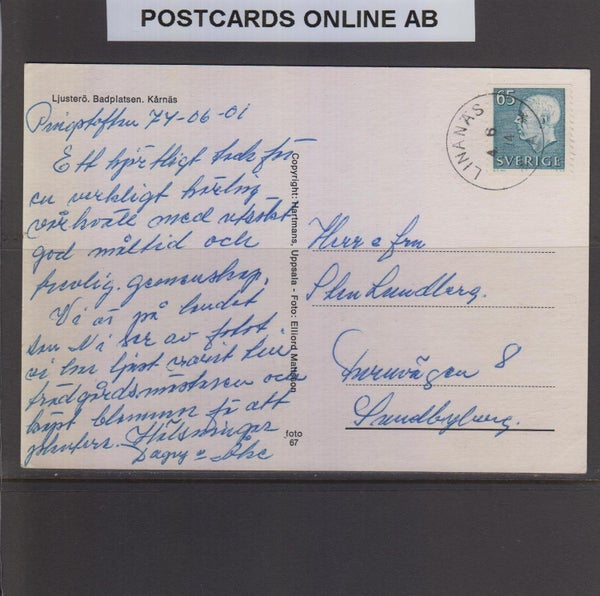 POSTCARDS ONLINE AB
Ljusterö. Badplatsen. Kårnäs
Pingstafton 74-06-01
Ett hjärtligt tack för
en verkligt härlig
vårkväll med utsökt
god måltid och
trevlig gemenskap.
Vi är på landet
som Ni ser av fotot.
vi har just varit hos
trädgårdsmästaren och
köpt blommor för att
plantera. Hälsningar
Dagny o Åke
Copyright: Hartmans, Uppsala - Foto: Elliord Mattsson
foto
67
LINANÄS
4 6
65
SVERIGE
Herr o fru
Sten Lundberg.
Tornvägen 8
Sundbyberg.